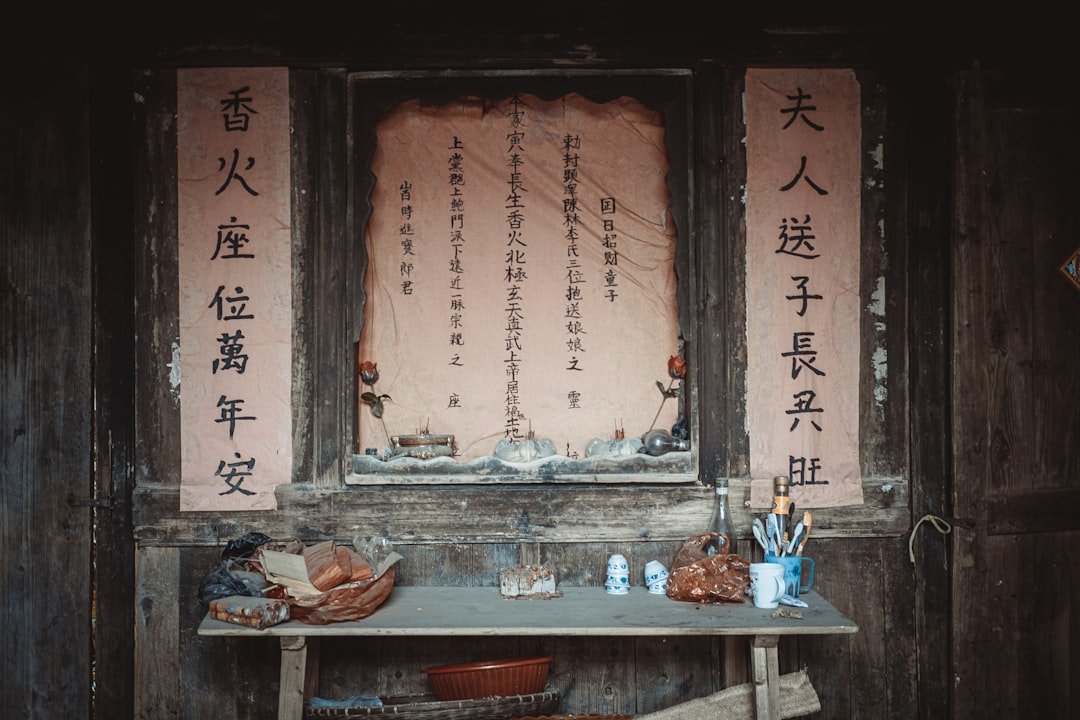 夫人送子長丑旺
囯日招財童子
勅封顯澤陳林李氏三位抱送娘娘之 靈
本家寅奉長生香火北極玄天真武上帝居住福土地
上黨郡上鮑門派下遠近一脉宗親之 座
時進寳郎君
香火座位萬年安